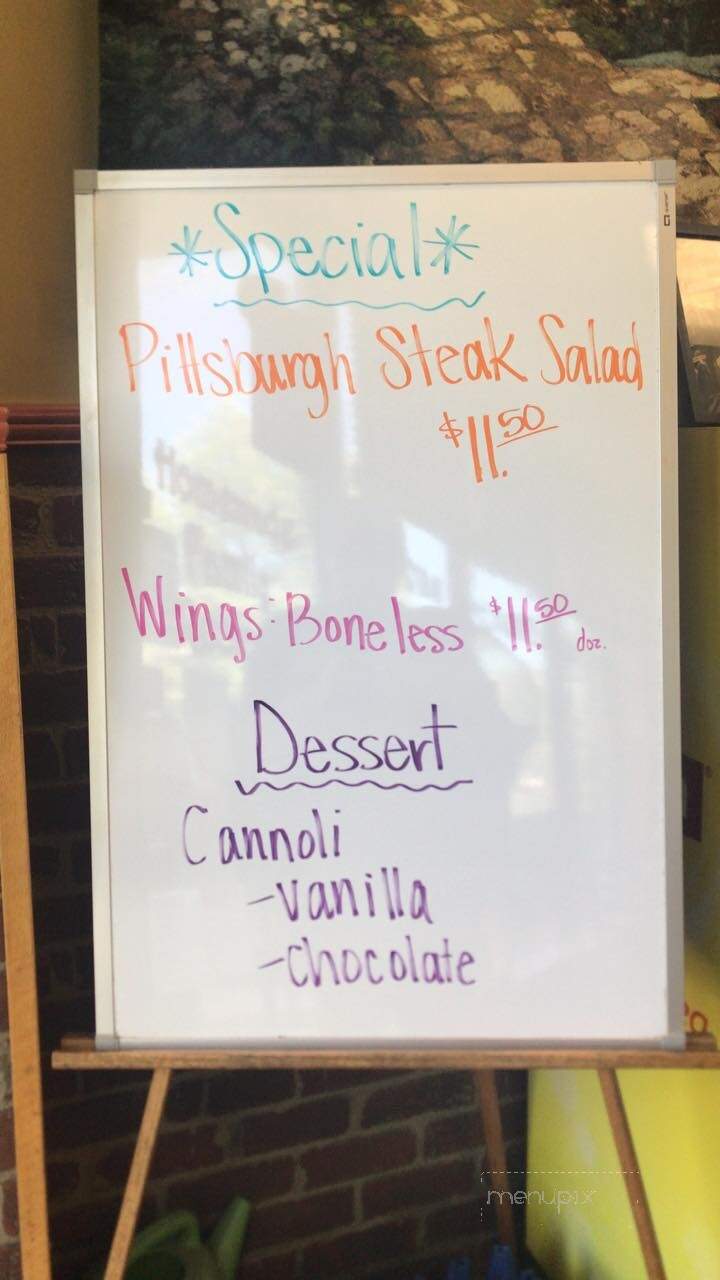 *Special*
Pittsburgh Steak Salad
$11.50
Wings: Boneless $11.50 doz.
Dessert
Cannoli
-Vanilla
-Chocolate
menupix